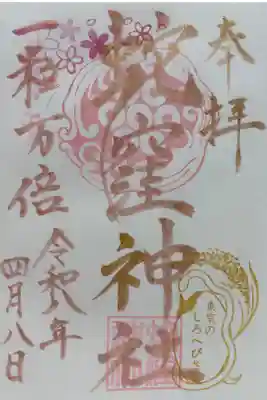 奉拝
蛇窪神社
東京の
しろへびさま
一粒万倍
令和八年
四月八日